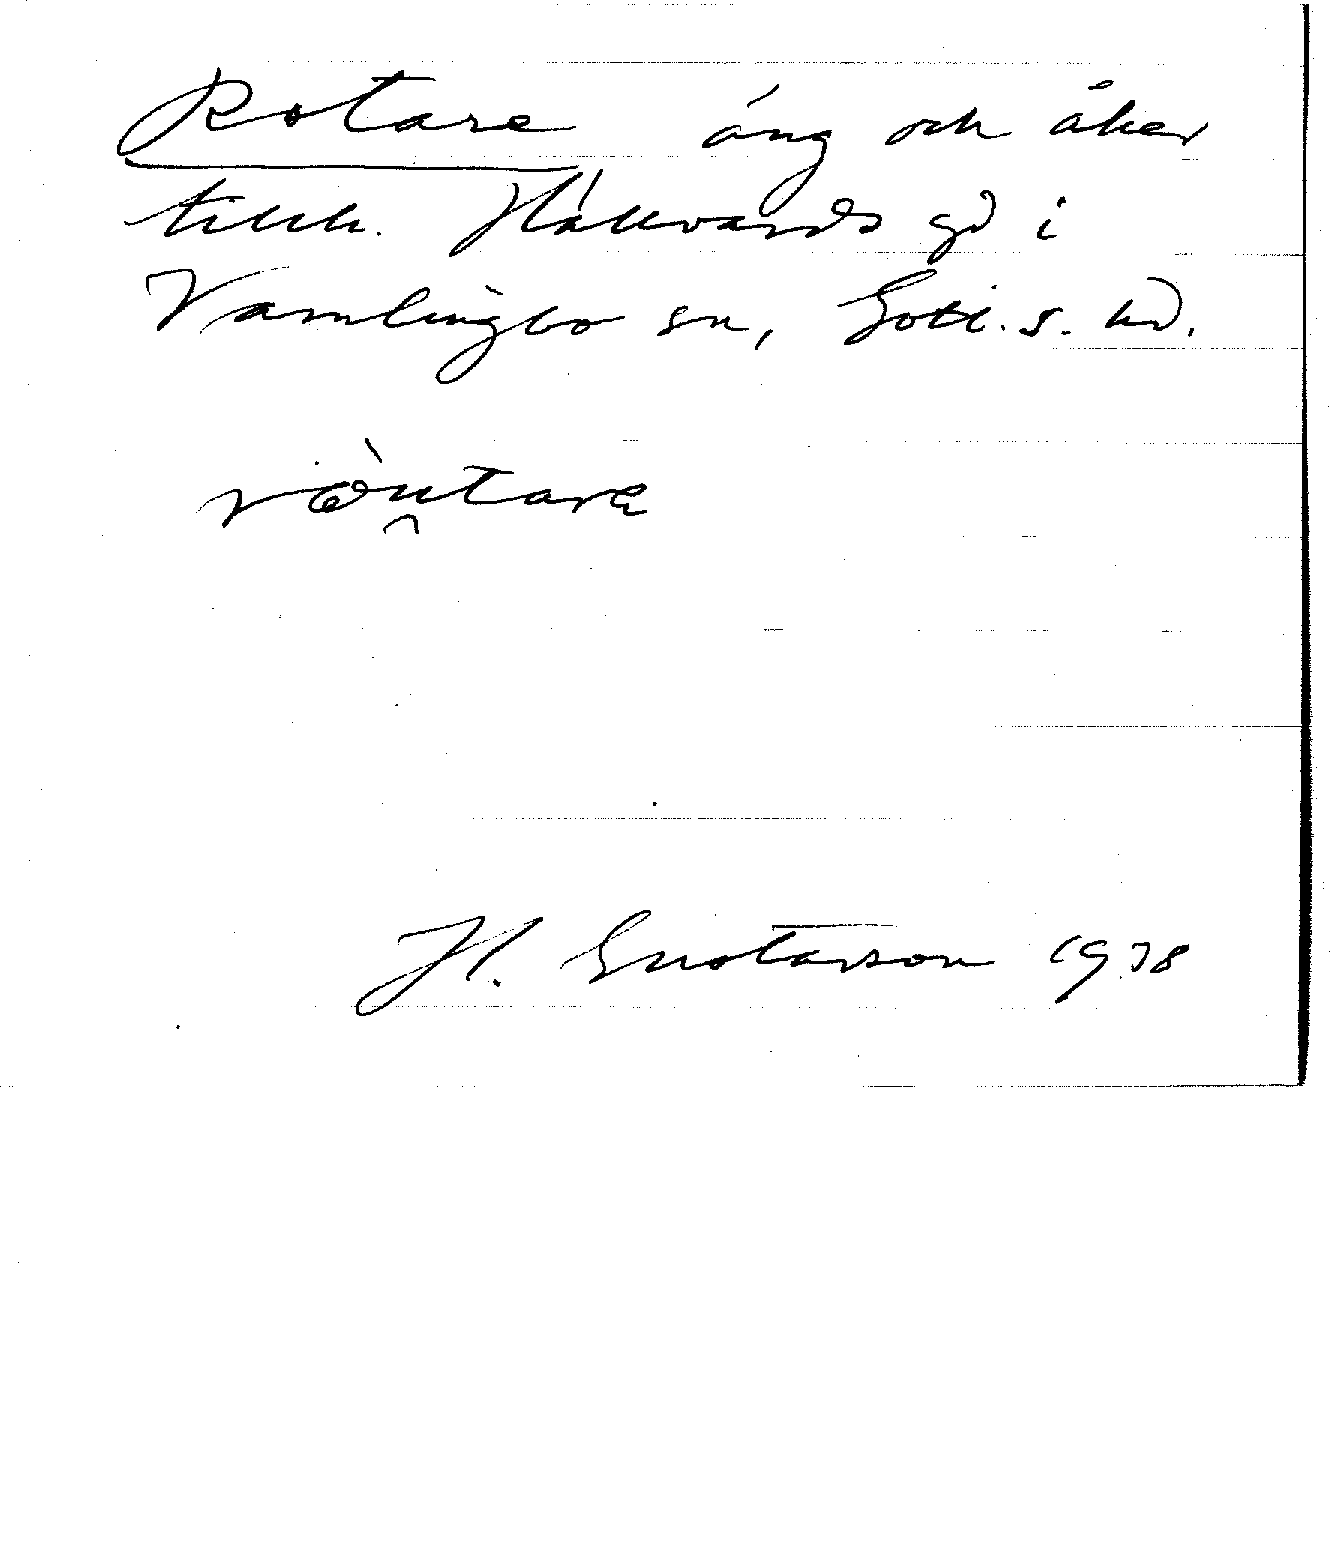 Rotare äng och åker
tillh. Hallvards gd i
Vamlingbo sn, Gotl. s. hd.
H. Gustavson 1938